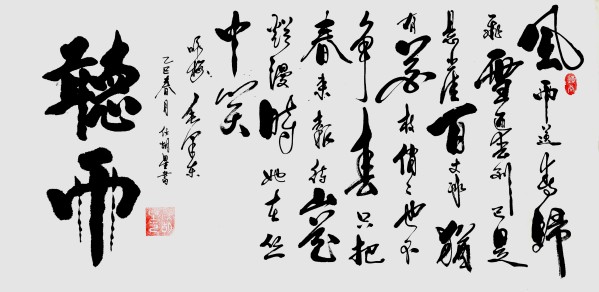 風雨送春歸
飛雪迎春到已是
悬崖百丈冰猶
有花枝俏々也不
争春只把
春来報待山花
爛漫時她在丛
中笑
咏梅 毛泽东
乙巳春月 書
聽雨